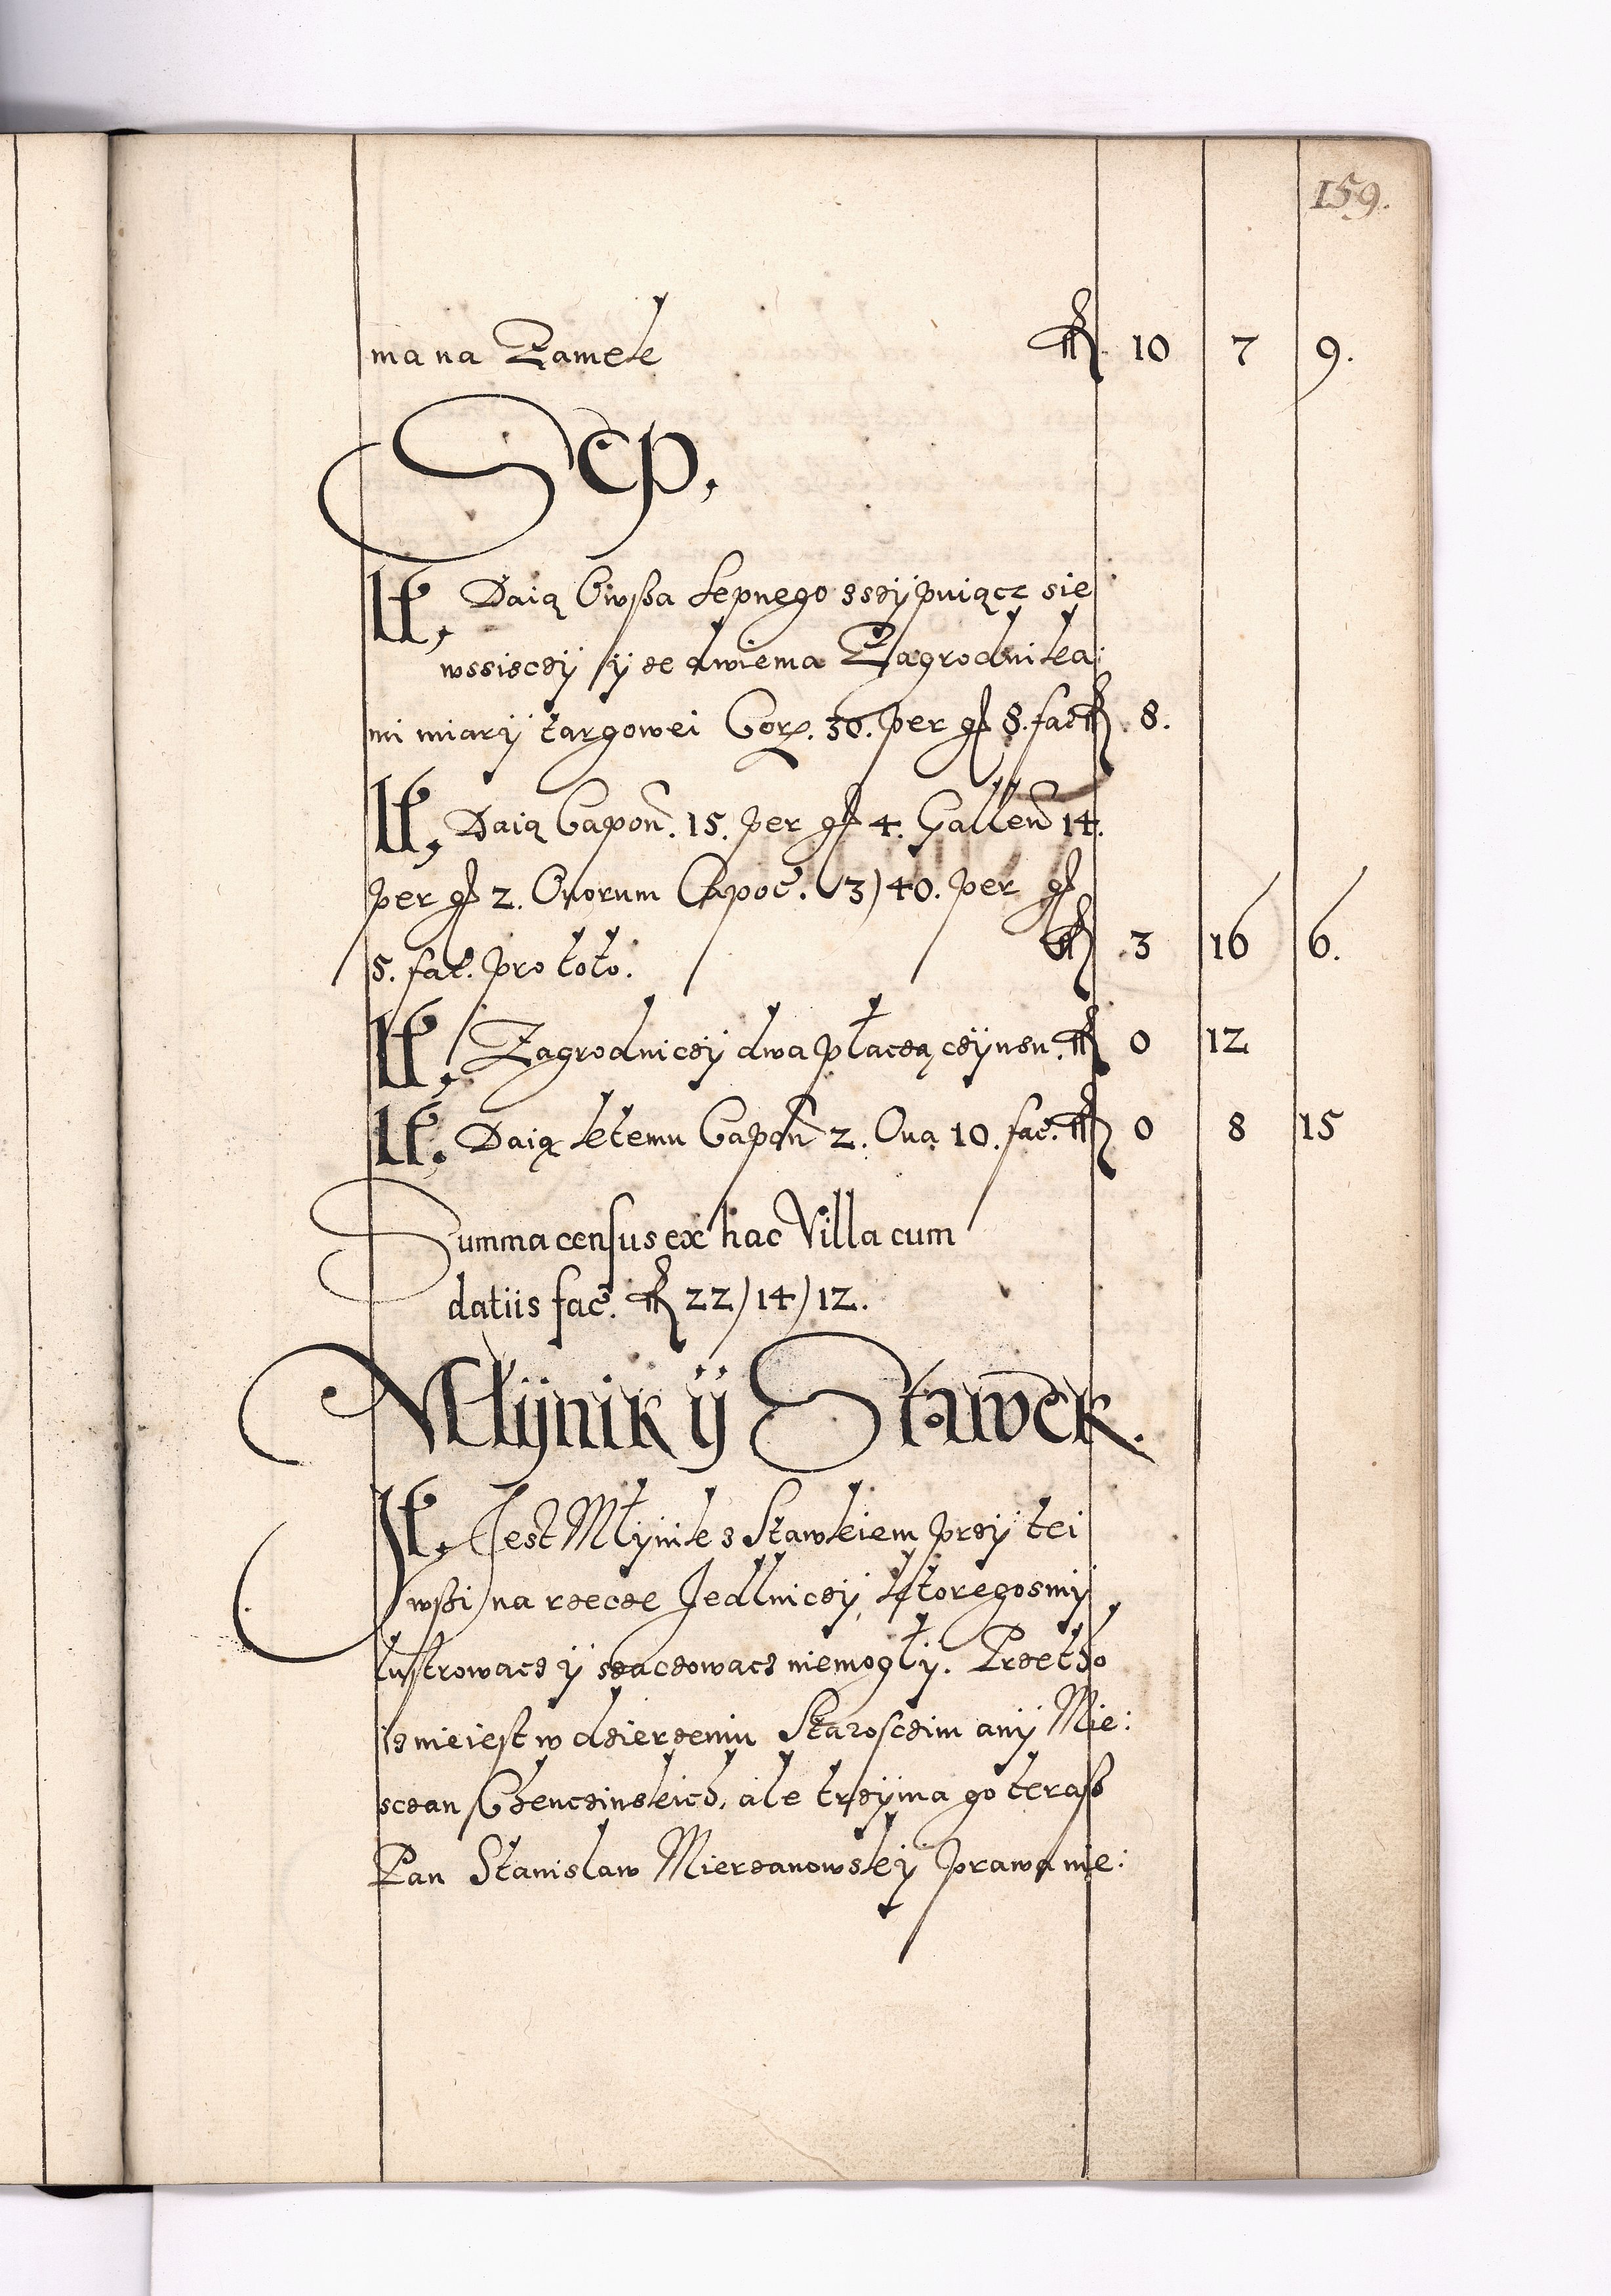 159.
ma na Zamek ff 10 7 9.
Sep.
It, Daią Owßa sepnego zsÿpuiącz się
wssisczÿ ÿ ze dwiema Zagrodnika:
mi miarÿ targowei Cor. 30. per gſ 8. fac ff 8.
It, Daią Capon. 15. per gſ 4. Gallen 14.
per gſ 2. Ouorum Capoc. 3)40. per gſ
5. fac. pro toto. ff 3 16 6.
It, Zagrodniczÿ dwa płaczą czÿnsu. ff 0 12
It. Daią ktemu Capon 2. Oua 10. fac. ff 0 8 15
Summa census ex hac Villa cum
datiis fac. ff 22)14)12.
Młÿnik ÿ Stawek.
It. Jest Młÿnik z Stawkiem przÿ tei
wßi na rzecze Jedlniczÿ, ktoregosmÿ
lustrowacz ÿ szaczowacz niemoglÿ. Przetho
iz nieiest w dzierzeniu Starosczim anÿ Mie:
sczan Chenczinskich, ale trzÿma go teraß
Pan Stanislaw Mierzanowskÿ prawa nie: